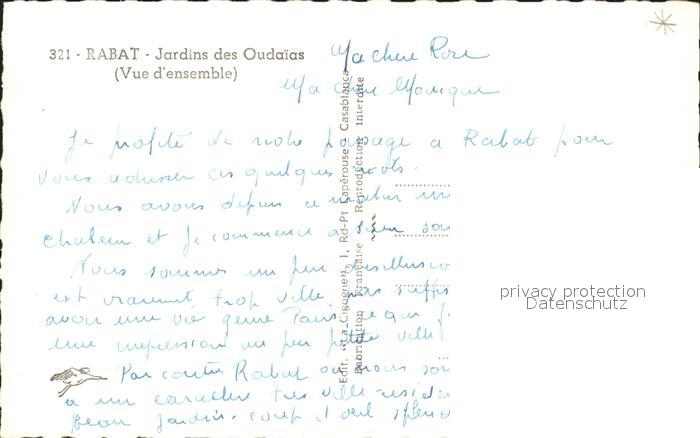 321 - RABAT - Jardins des Oudaïas
(Vue d'ensemble)
Ma chere Rose
Ma chère Monique
Je profite de notre passage a Rabat pour
vous adresser ces quelques mots.
Nous avons depuis ce matin un
chaleur et je commence a bien sou
Nous sommes un peu
est vraiment trop ville, pas suffis
avoir une vie genre Paris, ce qui f
une impression un peu petite ville
Par contre Rabat ou nous som
a un caractère tres ville
beau jardin. coup d'oeil splend
Edit. "La Cigogne", 1, Rd-Pt Lapérouse - Casablanca
Fabrication Française - Reproduction Interdite
privacy protection
Datenschutz